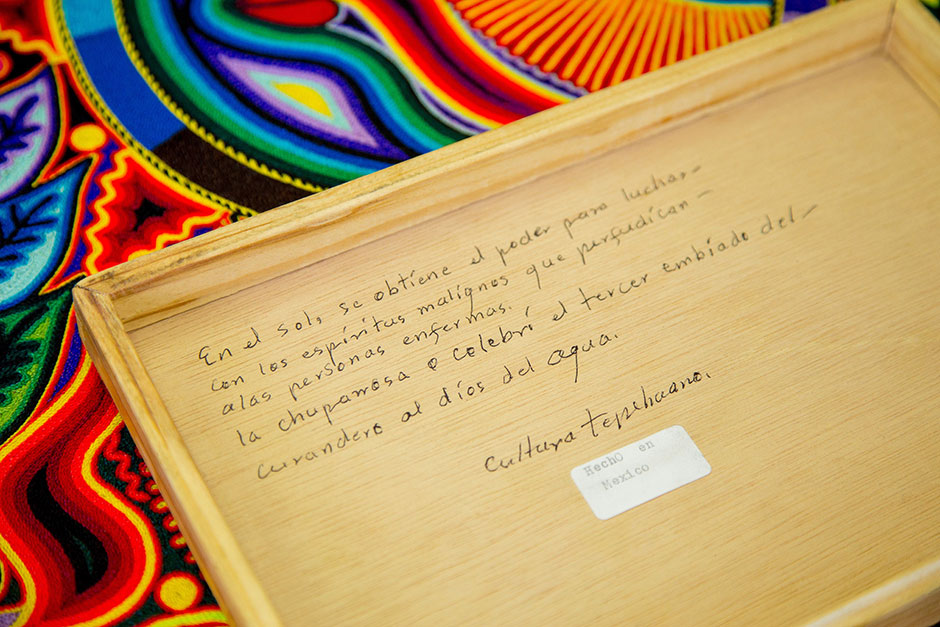 En el sol, se obtiene el poder para luchar-
con los espíritus malignos que perjudican-
alas personas enfermas.
la chuparrosa o celebrí el tercer embiado del-
curandero al díos del agua.
cultura tepehuano.
HechO en
Mexico